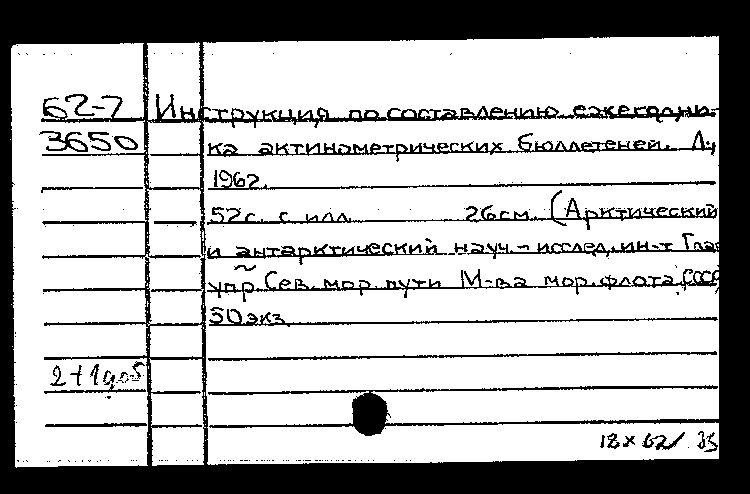 62-7 Инструкция по составлению ежегодни-
3650 ка актинометрических бюллетеней. Л.,
1962.
52с. с илл. 26см. (Арктический
и антарктический науч.-исслед. ин-т Глав
упр. Сев. мор. пути М-ва мор. флота СССР
50 экз.
2+1 доб
18 x 62/